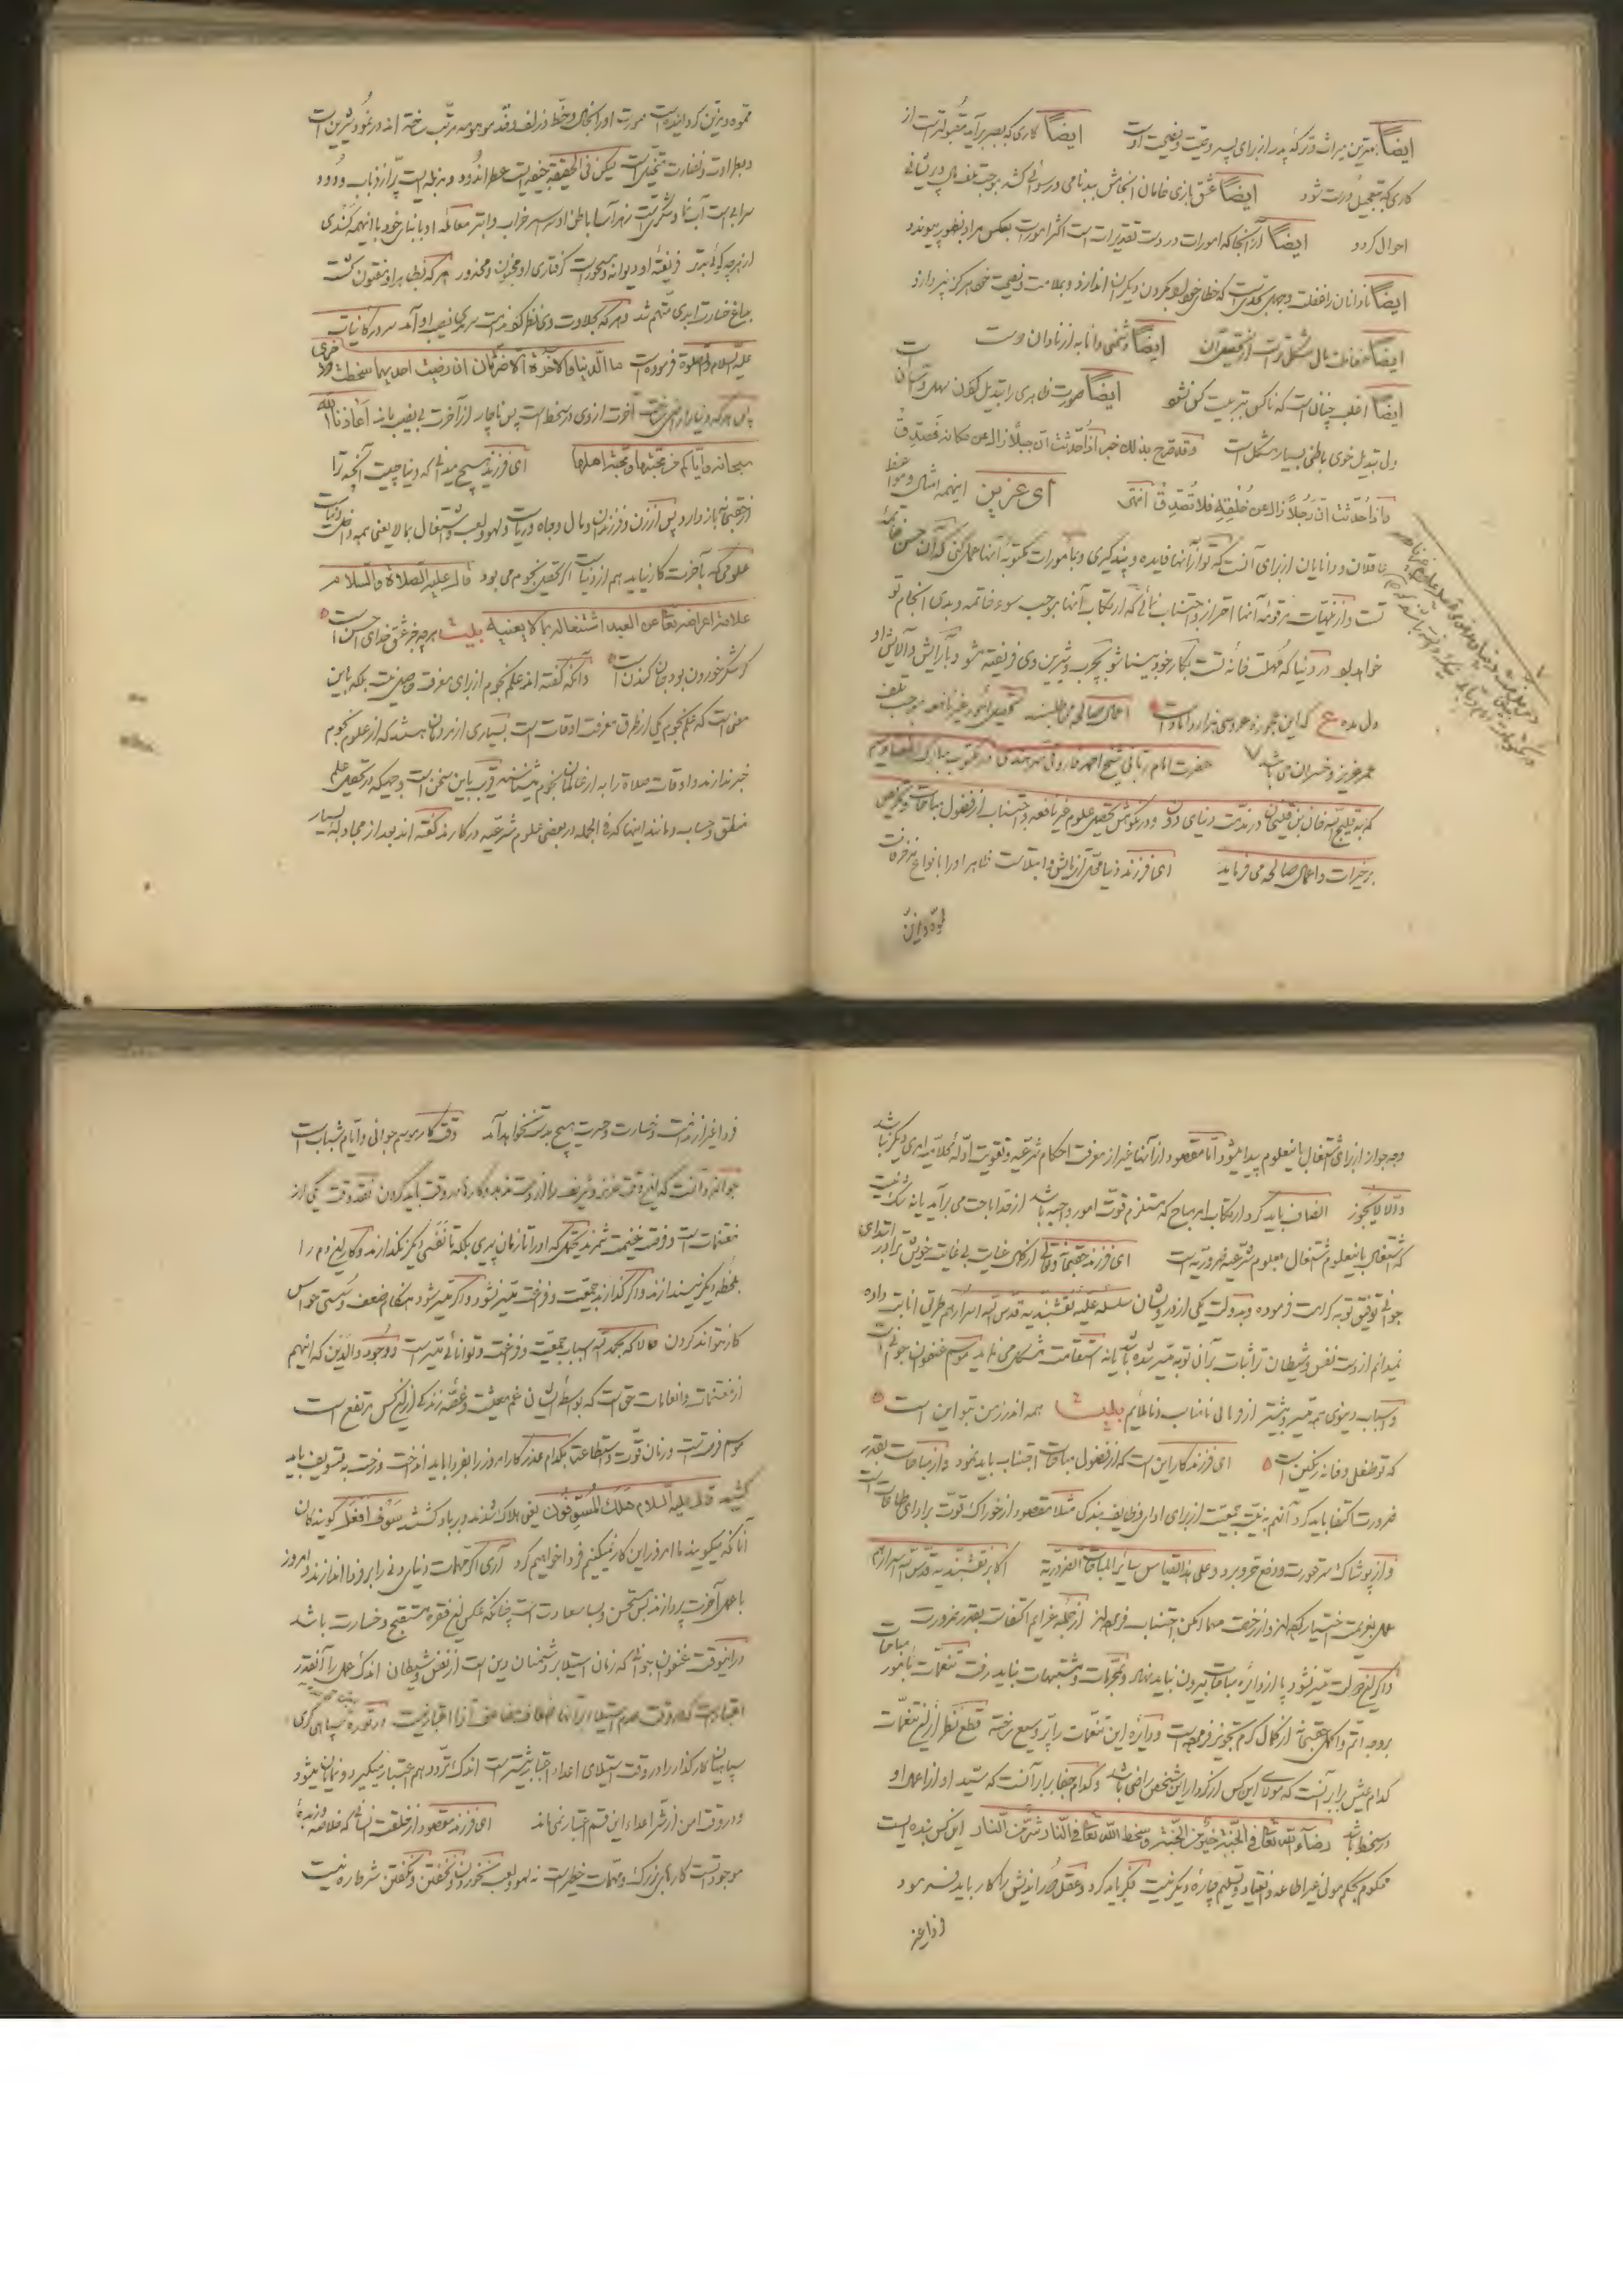 ایضاً بهترین میراث و ترکهٔ پدر از برای پسر وصیت و نصیحت است ایضاً کاری که بصبر برآید مقبولترست از
کاری که بتعجیل درست شود ایضاً عشق بازی خامان انجامش بدنامی و رسوائی کشد و موجب تلف مال و پریشانی
احوال گردد ایضاً از آنجا که امورات در دست تقدیرات است اکثر امورات بعکس مراد بظهور پیوندد
ایضاً نادانان را غفلت و جهل بحدیست که خطای خود بگردن دیگران اندازد و بملامت و نصیحت هرگز نپردازد
ایضاً حفاظت مال مشکل ترست از تحصیل آن ایضاً دشمنی دانا به از نادان دوست
ایضاً اغلب چنان است که ناکس بتربیت کس نشود ایضاً صورت ظاهری را تبدیل کردن سهل و آسان است
ولی تبدیل خوی باطنی بسیار مشکل است وقد صرح بذلک خبر اذا حدثت ان جبلاً زال عن مکانه فصدق
واذا حدثت ان رجلاً زال عن خلقه فلا تصدق انتهی ای عزیز اینهمه امثال و مواعظ
عاقلان و دانایان از برای آنست که تو از آنها فایده و پند گیری و بمأمورات مکتوبهٔ آنها عمل کنی که آن حسن خاتمهٔ
تست و از منهیات مرقومهٔ آنها احتراز و اجتناب نمائی که ارتکاب آنها موجب سوء خاتمه و بدی انجام تو
خواهد بود در دنیا که مهلت خانهٔ تست بکار خود بینا شو بچرب و شیرین وی فریفته مشو و بآرایش و آلایش او
دل مده ع که این عجوزه عروس هزار دامادست اعمال صالحه می طلبند تحصیل امور غیر نافعه موجب تلف
عمر عزیز و خسران می باشد حضرت امام ربانی شیخ احمد فاروقی سرهندی در مکتوب
که به قلیج الله خان بن قلیج خان در مذمت دنیای دون و در نکوهش تحصیل علوم غیر نافعه و اجتناب از فضول مباحات و تحریض
بر خیرات و اعمال صالحه می فرماید ای فرزند دنیا محل آزمایش و ابتلاست ظاهر او را بانواع مزخرفات
مموه و مزین
مموه و مزین گردانیده است صورت او را بخال و خط و زلف و قد موهومه مرتب ساخته اند در نمود شیرین است
و بطراوت و نضارت متخیل است لیکن فی الحقیقه جیفه ایست عطر اندود و مزبله ایست پر از ذباب و دود
سرابی است آب نما و شکریست زهر آسا باطن او سراسر خراب و ابتر معامله او با بنای خود با اینهمه گندگی
از هر چه گوئی بدتر فریفتهٔ او دیوانه و مسحورست گرفتار او مجنون و مخدور هر که بظاهر او مفتون گشت
بداغ خسارت ابدی متهم شد و هر که بحلاوت وی نظر کرد ندامت سرمدی نصیب او آمد سرور کائنات
علیه السلام والصلوة فرموده است ما الدنیا والآخرة الا ضرتان ان رضیت احدیهما سخطت الاخری
پس هر که دنیا را راضی ساخت آخرت از وی در سخط است پس ناچار از آخرت بی نصیب باشد اعاذنا الله
سبحانه وایاکم عن محبتها ومحبة اهلها ای فرزند هیچ میدانی که دنیا چیست آنچه ترا
از حق باز دارد پس از زن و فرزندان و مال و جاه و ریاست و لهو و لعب و اشتغال بما لا یعنی همه داخل دنیاست
علومی که بآخرت کار نیاید هم از دنیاست اگر تحصیل نجوم می بود قال علیه الصلاة والسلام
علامة اعراضه تعالی عن العبد اشتغاله بما لا یعنیه بیت هر چه جز عشق خدای احسن است
گر شکر خوردن بود جان کندن است و آنکه گفته اند علم نجوم از برای معرفت اوقات صلوة است بلکه باین
معنی است که علم نجوم یکی از طرق معرفت اوقات است بسیاری از مردمان هستند که از علم نجوم
خبر ندارند و اوقات صلاة را به از عالمان نجوم میشناسند قریب باین سخن است وجهی که در تحصیل علم
منطق و حساب و مانند اینها که فی الجمله در بعضی علوم شرعیه در کارند گفته اند بعد از مجادلهٔ بسیار
وجه جواز از برای اشتغال باینعلوم پیدا میشود اما مقصود از آنها غیر از معرفت احکام شرعیه و تقویت ادلهٔ کلامیه امری دیگر نباشد
والا لا یجوز انصاف باید کرد ارتکاب امر مباح که مستلزم فوت امور واجبه باشد از حد اباحت می برآید یا نه شک نیست
که اشتغال باینعلوم اشتغال بعلوم شرعیه ضروریه است ای فرزند حق سبحانه وتعالی از کمال عنایت بی غایت خویش ترا در ابتدای
جوانی توفیق توبه کرامت فرموده و بدولت یکی از درویشان سلسلهٔ علیه نقشبندیه قدس الله اسرارهم طریق انابت داده
نمیدانم از دست نفس و شیطان ترا ثبات بر آن توبه میسر شده باشد یا نه استقامت مشکل می نماید موسم عنفوان جوانی است
و اسباب دنیوی همه میسر و بیشتر از قرنای نامناسب و ناملائم بیت همه اندرز من بتو این است
که تو طفلی و خانه رنگین است ای فرزند کار این است که از فضول مباحات اجتناب باید نمود و از مباحات بقدر
ضرورت اکتفا باید کرد آنهم به نیت جمعیت از برای ادای وظایف بندگی مثلاً مقصود از خوراک قوت بر ادای طاعات است
و از پوشاک ستر عورت و دفع حر و برد و علی هذا القیاس سائر المباحات الضروریة اکابر نقشبندیه قدس الله اسرارهم
عمل بعزیمت اختیار کرده اند و از رخصت مهما امکن اجتناب فرموده اند از جمله عزایم اکتفاست بقدر ضرورت
و اگر این دولت میسر نشود پا از دایرهٔ مباحات بیرون نباید نهاد و بمحرمات و مشتبهات نباید رفت تنعمات بامور مباحات
بروجه اتم و اکمل حق سبحانه از کمال کرم تجویز فرموده است و دایرهٔ این تنعمات را پر وسیع ساخته قطع نظر از این تنعمات
کدام عیش برابر آنست که مولای این کس از کردار این شخص راضی باشد و کدام جفا برابر آنست که سید او از اعمال او
در سخط باشد رضاء الله تعالی فی الجنة خیر من الجنة وسخط الله تعالی فی النار شر من النار این کس بنده ایست
محکوم بحکم مولی غیر اطاعت و انقیاد و تسلیم چارهٔ دیگر نیست فکر باید کرد و عقل دور اندیش را کار باید فرمود
فردا غیر
فردا غیر از ندامت و خسارت و حسرت هیچ بدست نخواهد آمد وقت کار موسم جوانی و ایام شباب است
جوانمرد آنست که این وقت عزیز و شریف را از دست ندهد و کار امروز باید کردن نقد وقت یکی از
مغتنمات است و فرصت غنیمت شمرند یحتمل که او را تا زمان پیری بلکه تا نفسی دیگر نگذارند و کار این دم را
بلحظهٔ دیگر نیندازند و اگر گذارند جمعیت و فرصت میسر نشود و اگر میسر شود هنگام ضعف و سستی حواس
کار نتواند کردن حالا که بحمد الله اسباب جمعیت و فراغت و توانائی میسر است و وجود والدین که اینهم
از مغتنمات و انعامات حق است که بواسطهٔ ایشان غم معیشت و غصهٔ زندگانی از این کس مرتفع است
موسم فرصت است و زمان قوت و استطاعت بکدام عذر کار امروز را بفردا باید انداخت و رخت به تسویف باید
کشید قال علیه السلام هلک المسوفون یعنی هلاک شدند و برباد گشتند سوف افعل گویندگان
آنانکه میگویند ما امروز این کار نمیکنیم فردا خواهیم کرد آری اگر مهمات دنیای دنی را بر فردا اندازند و امروز
باعمال آخرت پردازند بس مستحسن و بسا سعادت است چنانکه عکس این فقره مستقبح و خسارت باشد
در اینوقت عنفوان جوانی که زمان استیلای دشمنان دین است از نفس و شیطان اندک عمل را آنقدر
اعتبارست که در وقت عدم استیلاء آنها اضعاف مضاعف آنرا اعتبار نیست در قوره سپاهی گری
سپاهیان کارگذار را در وقت استیلای اعداء اعتبار بیشترست اندک تردد هم اعتبار میگیرد و نمایان میشود
و در وقت امن از شر اعداء این قسم اعتباری نماند ای فرزند مقصود از خلقت انسانی که خلاصه و زبدهٔ
موجوداتست کارهای بزرگ و مهمات خطیرست نه لهو و لعب و خوردن و خفتن و گفتن شرط ره نیست